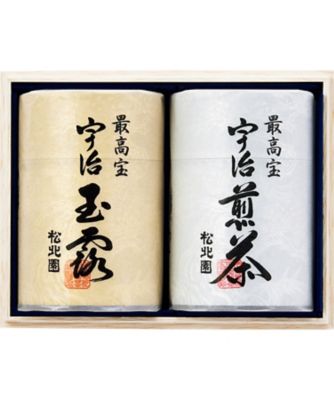 最高宝
宇治玉露
松北園
最高宝
宇治煎茶
松北園